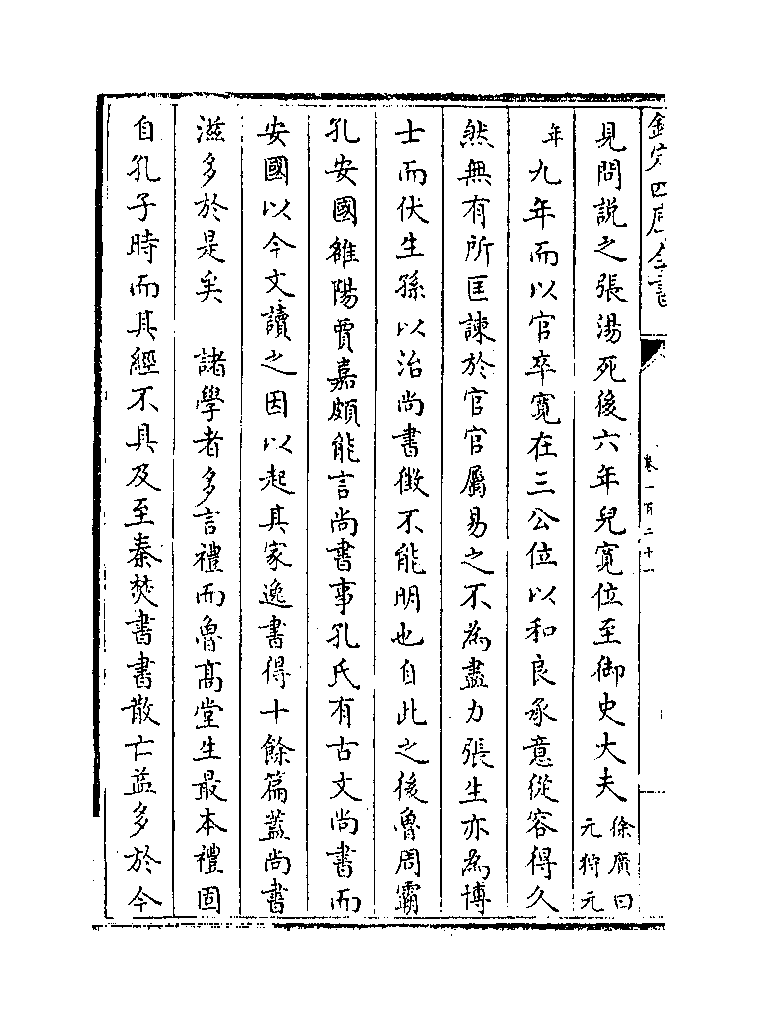 欽定四庫全書
卷一百二十一
見問說之張湯死後六年兒寛位至御史大夫徐廣曰元狩元
年九年而以官卒寛在三公位以和良承意從容得久
然無有所匡諫於官官屬易之不為盡力張生亦為博
士而伏生孫以治尚書徴不能明也自此之後魯周霸
孔安國雒陽賈嘉頗能言尚書事孔氏有古文尚書而
安國以今文讀之因以起其家逸書得十餘篇蓋尚書
滋多於是矣　諸學者多言禮而魯髙堂生最本禮固
自孔子時而其經不具及至秦焚書書散亡益多於今